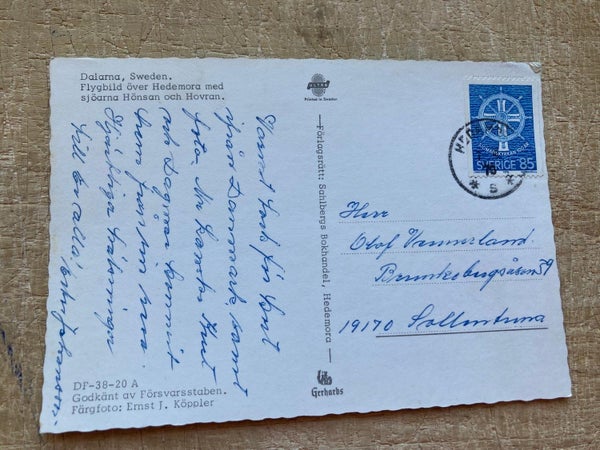 Dalarna, Sweden.
Flygbild över Hedemora med
sjöarna Hönsan och Hovran.
ULTRA
Printed in Sweden
SVERIGE 85
S
Varmt tack för kort
från Danmark samt
foto. Nu kanske Knut
och Dagmar kommit
hem från sin resa.
Hjärtliga hälsningar
till er alla!
Förlagsrätt: Sahlbergs Bokhandel, Hedemora
Herr
Olof Vennerland
Brunkebergsåsen 59
19170 Sollentuna
DF-38-20 A
Godkänt av Försvarsstaben.
Färgfoto: Ernst J. Köppler
Gerhards